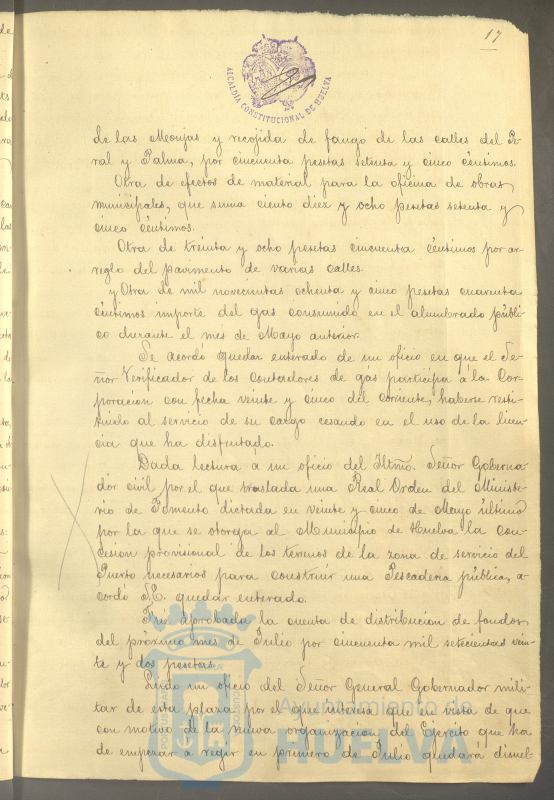 17
ALCALDÍA CONSTITUCIONAL DE HUELVA
de las Monjas y recojida de fango de las calles del Pe-
ral y Palma, por cincuenta pesetas setenta y cinco céntimos.
Otra de efectos de material para la oficina de obras
municipales, que suma ciento diez y ocho pesetas setenta y
cinco céntimos.
Otra de treinta y ocho pesetas cincuenta céntimos por ar-
reglo del pavimento de varias calles.
y Otra de mil novecientas ochenta y cinco pesetas cuarenta
céntimos importe del gas consumido en el alumbrado públi-
co durante el mes de Mayo anterior.
Se acordó quedar enterado de un oficio en que el Se-
ñor Verificador de los contadores de gas participa á la Cor-
poración con fecha veinte y cinco del corriente, haberse resti-
tuido al servicio de su cargo cesando en el uso de la licen-
cia que ha disfrutado.
Dada lectura á un oficio del Iltmo. Señor Goberna-
dor civil por el que traslada una Real Orden del Ministe-
rio de Fomento dictada en veinte y cinco de Mayo último
por la que se otorga al Municipio de Huelva la con-
cesión provisional de los terrenos de la zona de servicio del
Puerto necesarios para construir una Pescadería pública, a-
cordó S.E. quedar enterado.
Fué aprobada la cuenta de distribución de fondos
del próximo mes de Julio por cincuenta mil setecientas vein-
te y dos pesetas.
Leido un oficio del Señor General Gobernador mili-
tar de esta plaza por el que interesa que en vista de que
con motivo de la nueva organización del Ejercito que ha
de empezar á regir en primero de Julio quedará disuel-
Ayuntamiento de
HUELVA